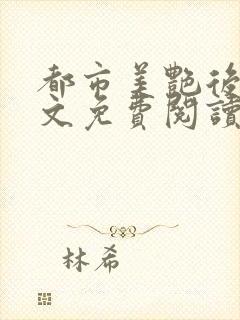 都市美艷後
文免費閱讀
林希